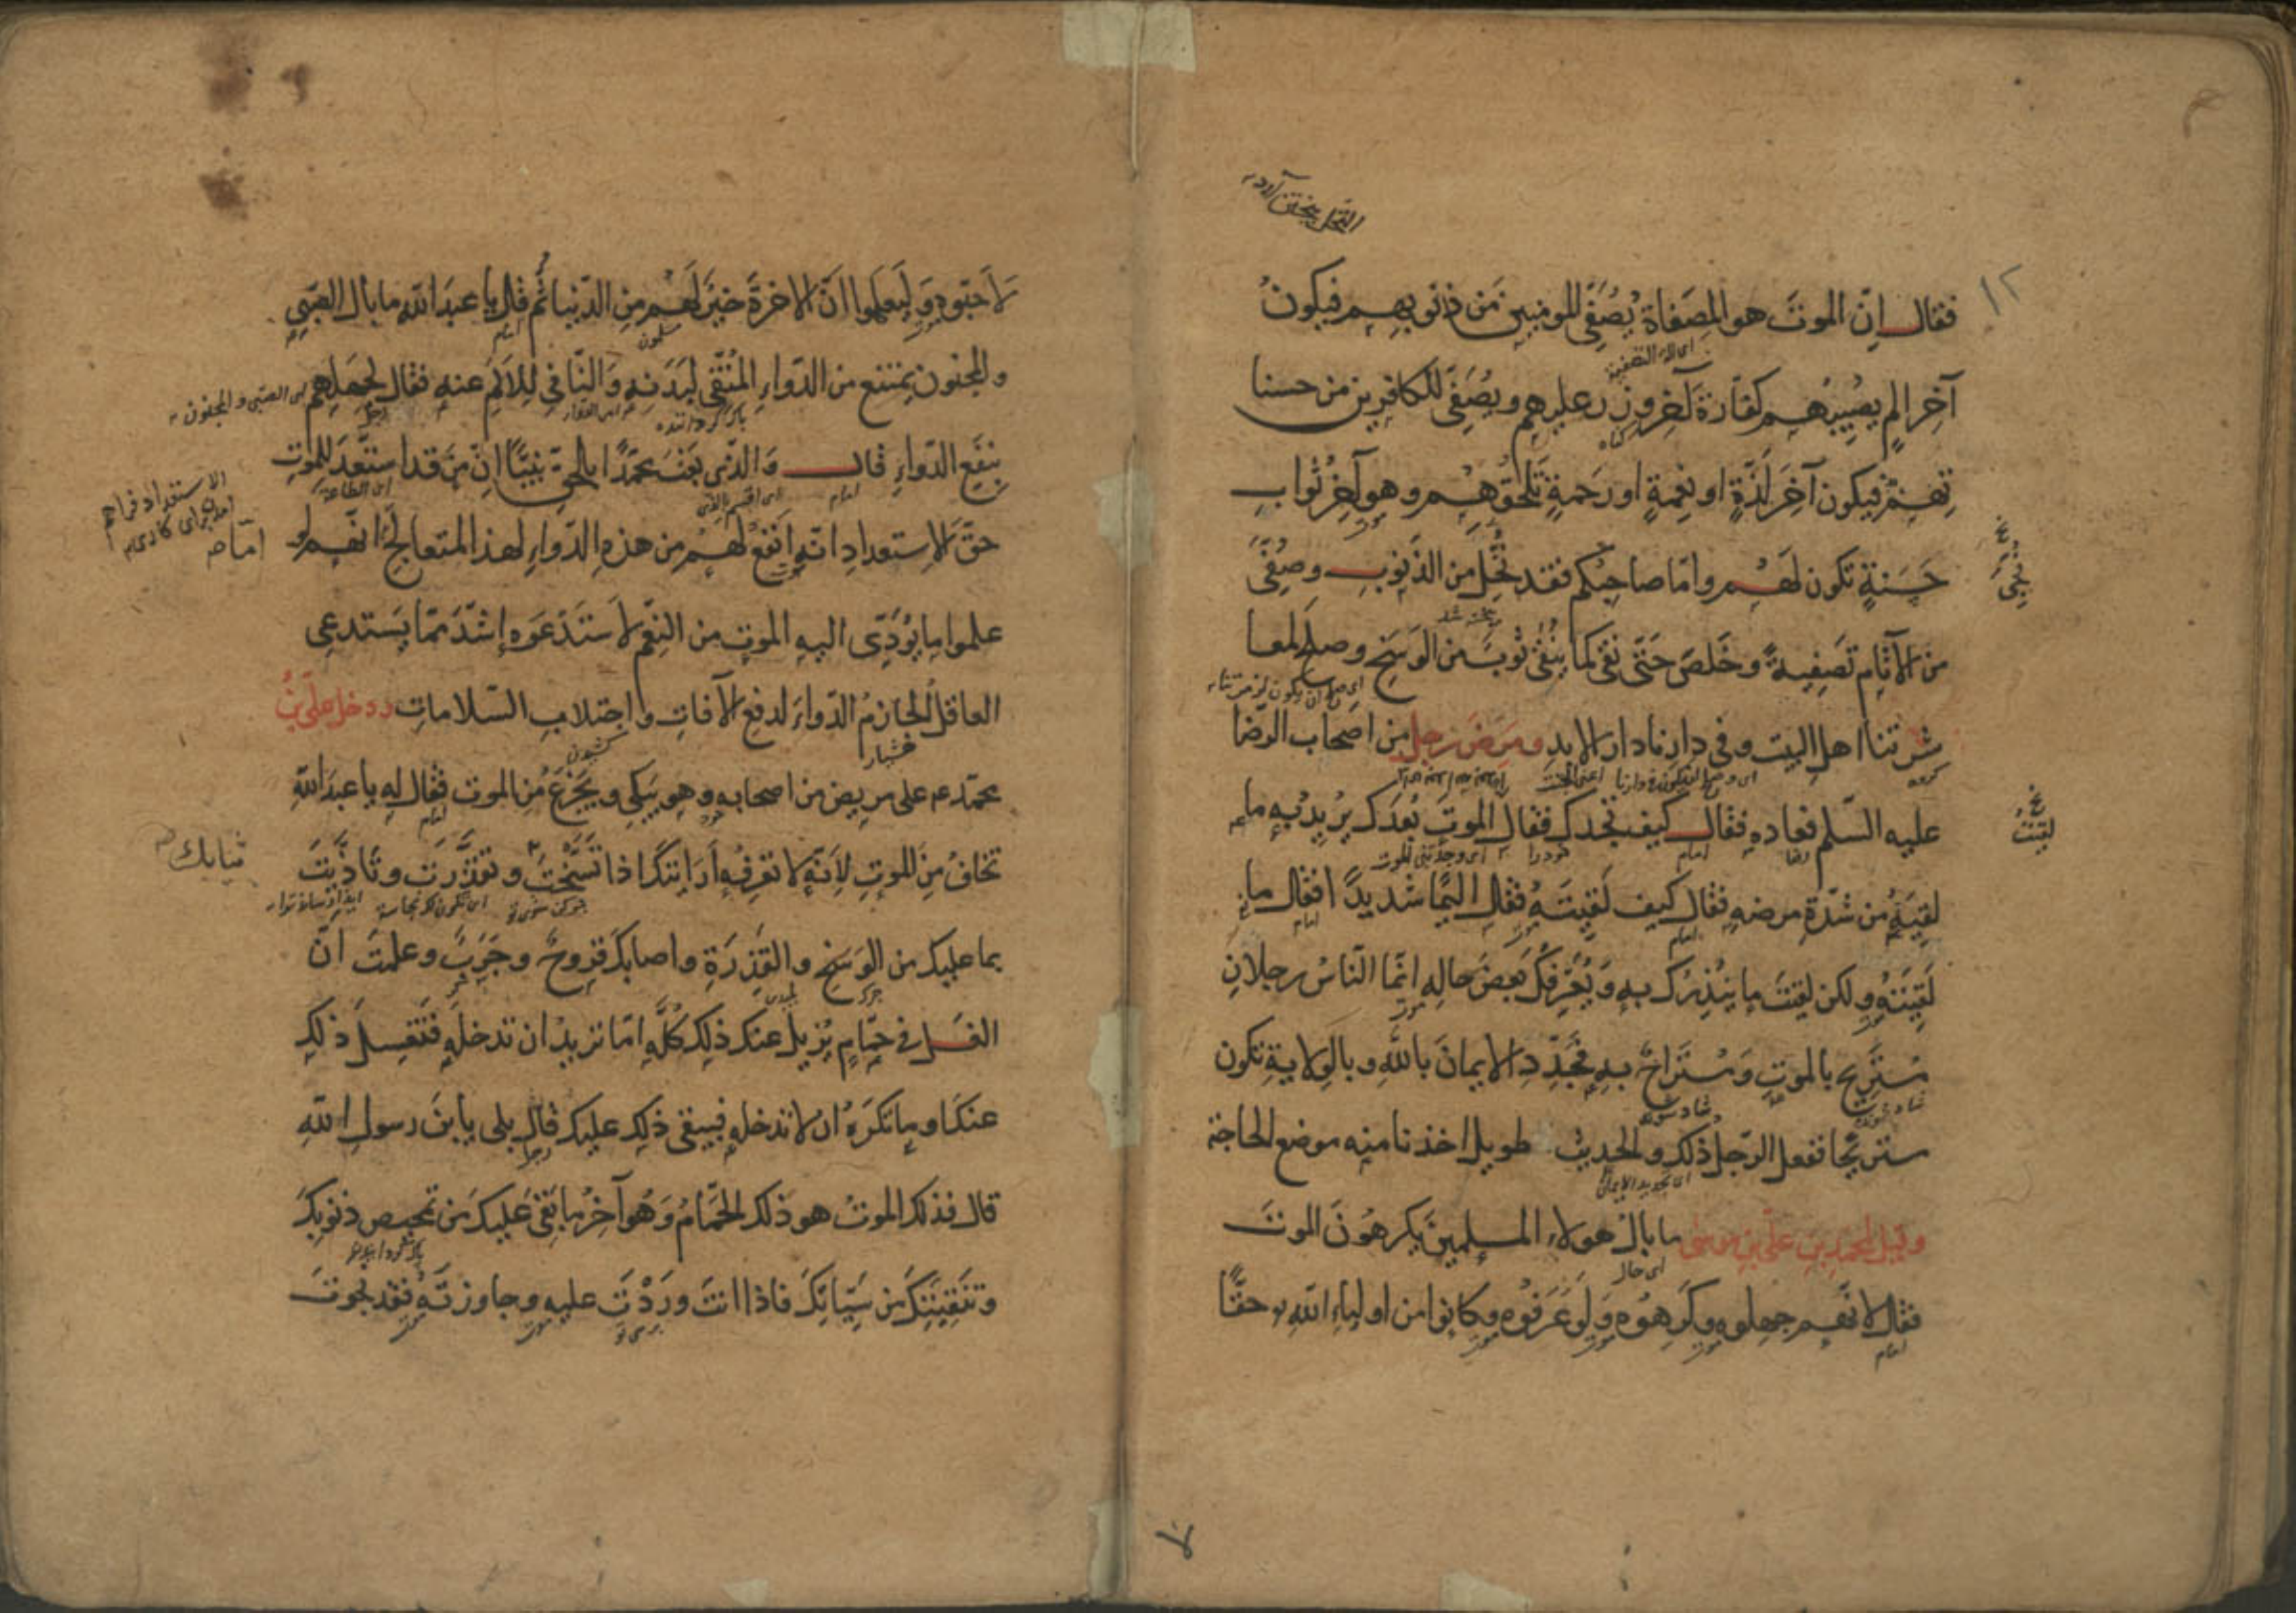 فقال إنّ الموتَ هو المِصَفاة يُصَفّى المومنين مَن ذنوبهم فيكونُ
آخِر الم يصيبهم كفّارة آخر وزر عليهم ويُصَفّى الكافرين من حسنا
تهم فيكون آخَر لَذّةٍ او نعمةٍ او رحمةٍ تلحقهم وهو آخر ثواب
حَسَنةٍ تكون لهم وامّا صاحبكم فقد نُخل من الذنوب وصُفّى
من الآثام تَصفيةً وخَلصَ حتّى نقى كما ينقى ثوبٌ من الوَسَخ وصلح لمعا
شرتنا اهل البيت وفى دارنا دار الابد ومرض رجل من اصحاب الرضا
عليه السّلم فعاده فقال كيف تجدك فقال الموت بعدك يريد به ما
لقيه من شدّة مرضه فقال كيف لقيته فقال اليمًا شديدًا فقال ما
لقيته ولكن لقيت ما ينذرك به ويعرفك بعض حاله انّما النّاس رجلان
مستريح بالموت ومستراح به فجدّد الايمان بالله وبالولاية تكون
مستريحًا ففعل الرّجل ذلك والحديث طويل اخذنا منه موضع الحاجة
وقيل لمحمد بن علىّ بن موسى ما بال هولاء المسلمين يكرهون الموت
فقال لانّهم جهلوه وكرهوه ولو عرفوه وكانوا من اولياء الله حقًّا
١٢
نُجّىَ
لقيتُ
لاحبّوه وليعلموا انّ الاخرة خيرٌ لهم من الدّنيا ثُمّ قال يا عبد الله ما بال الصّبىِ
والمجنون يمتنع من الدّواء المُنقّى لبدنه والنّافى للالم عنه فقال لجهلهم
بنفع الدّواء قال والذى بعث محمّدًا بالحقّ نبيًّا انّ من قد استعدّ للموت
حقّ الاستعداد انّه انفع لهم من هذه الدّواء لهذا المتعالج امّا انّهم لو
علموا ما يؤدّى اليه الموت من النِعَم لاستدعوه اشدّ ممّا يستدعى
العاقل الحازم الدّواء لدفع الآفات واجتلاب السّلامات ودخل علىّ بنُ
محمّد ع م على مريض من اصحابه وهو يبكى ويجزع من الموت فقال له يا عبد الله
تخاف من الموت لانّه لا تعرفه أرايتك اذا تسّخت وتقذّرت وتاذّيت
بما عليك من الوسخ والقذرة واصابك قروح وجرب وعلمت انّ
الغسل فى حمّام يزيل عنك ذلك كلّه امّا تريد ان تدخله فتغسل ذلك
عنك او ما تكره ان لا تدخله فيبقى ذلك عليك قال بلى يابن رسول الله
قال فذلك الموت هو ذلك الحمّام وهو آخر ما بقى عليك من تمحيص ذنوبك
وتنقيتك من سيّاتك فاذا انت وردت عليه وجاوزته فقد نجوت
اى الصبى والمجنون
امّا ص
ثيابك